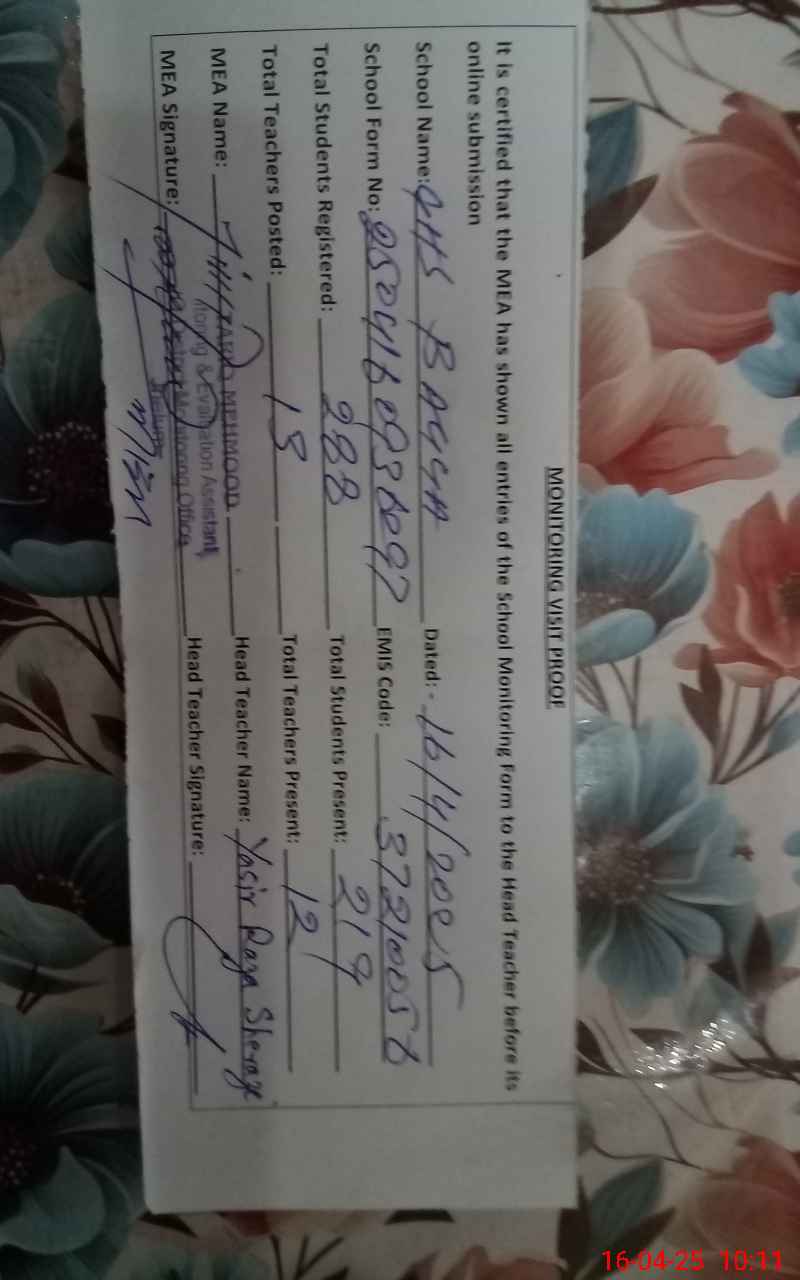 MONITORING VISIT PROOF
It is certified that the MEA has shown all entries of the School Monitoring Form to the Head Teacher before its
online submission
School Name: GHS BAGGA Dated: - 16/4/2025
School Form No: EMIS Code:
Total Students Registered: 288 Total Students Present: 219
Total Teachers Posted: Total Teachers Present: 12
MEA Name: TARIQ MEHMOOD Head Teacher Name: Yasir Raza
Monitoring & Evaluation Assistant
MEA Signature: Monitoring Office Head Teacher Signature:
Jhelum
16-04-25 10:11